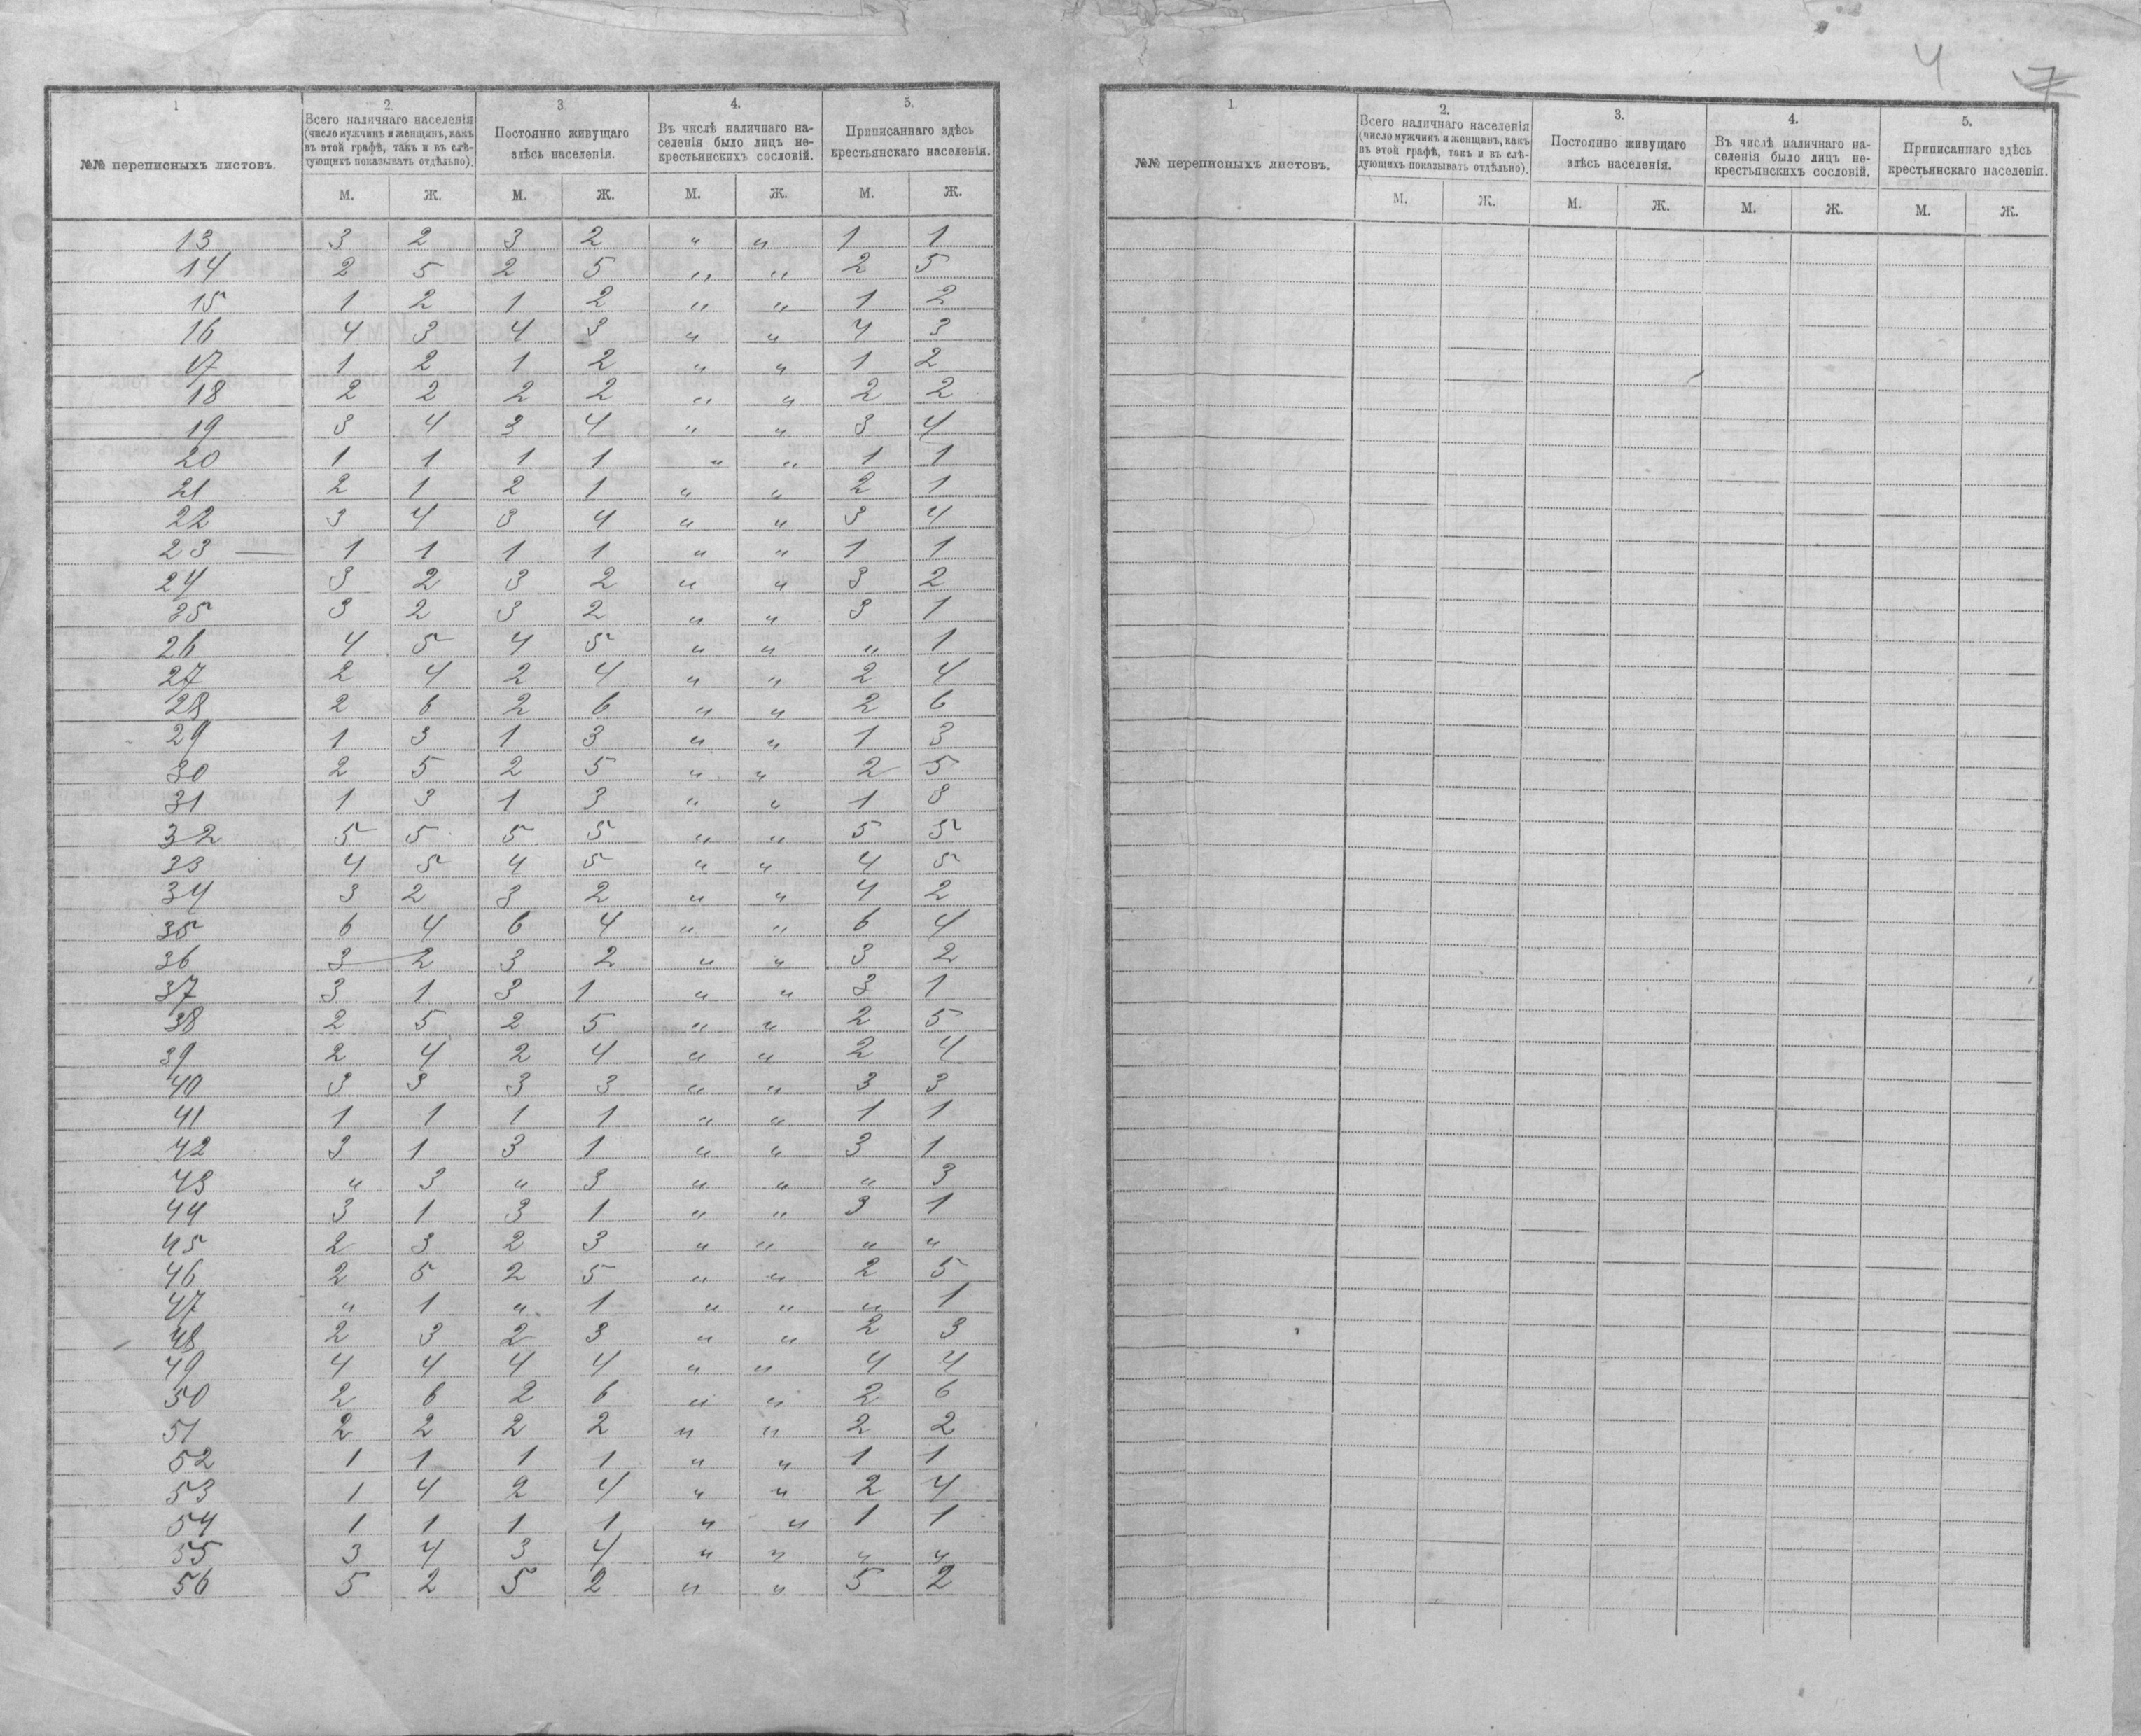 4 7
1 2. 3 4. 5.
№№ переписныхъ листовъ.
Всего наличнаго населенія
(число мужчинъ и женщинъ, какъ
въ этой графѣ, такъ и въ слѣ-
дующихъ показывать отдѣльно).
Постоянно живущаго
здѣсь населенія.
Въ числѣ наличнаго на-
селенія было лицъ не-
крестьянскихъ сословій.
Приписаннаго здѣсь
крестьянскаго населенія.
М. Ж. М. Ж. М. Ж. М. Ж.
13 3 2 3 2 „ „ 1 1
14 2 5 2 5 „ „ 2 5
15 1 2 1 2 „ „ 1 2
16 4 3 4 3 „ „ 4 3
17 1 2 1 2 „ „ 1 2
18 2 2 2 2 „ „ 2 2
19 3 4 3 4 „ „ 3 4
20 1 1 1 1 „ „ 1 1
21 2 1 2 1 „ „ 2 1
22 3 4 3 4 „ „ 3 4
23 — 1 1 1 1 „ „ 1 1
24 3 2 3 2 „ „ 3 2
25 3 2 3 2 „ „ 3 1
26 4 5 4 5 „ „ „ 1
27 2 4 2 4 „ „ 2 4
28 2 6 2 6 „ „ 2 6
29 1 3 1 3 „ „ 1 3
30 2 5 2 5 „ „ 2 5
31 1 3 1 3 „ „ 1 3
32 5 5 5 5 „ „ 5 5
33 4 5 4 5 „ „ 4 5
34 3 2 3 2 „ „ 4 2
35 6 4 6 4 „ „ 6 4
36 3 2 3 2 „ „ 3 2
37 3 1 3 1 „ „ 3 1
38 2 5 2 5 „ „ 2 5
39 2 4 2 4 „ „ 2 4
40 3 3 3 3 „ „ 3 3
41 1 1 1 1 „ „ 1 1
42 3 1 3 1 „ „ 3 1
43 „ 3 „ 3 „ „ „ 3
44 3 1 3 1 „ „ 3 1
45 2 3 2 3 „ „ „ „
46 2 5 2 5 „ „ 2 5
47 „ 1 „ 1 „ „ „ 1
48 2 3 2 3 „ „ 2 3
49 4 4 4 4 „ „ 4 4
50 2 6 2 6 „ „ 2 6
51 2 2 2 2 „ „ 2 2
52 1 1 1 1 „ „ 1 1
53 1 4 2 4 „ „ 2 4
54 1 1 1 1 „ „ 1 1
55 3 4 3 4 „ „ „ „
56 5 2 5 2 „ „ 5 2
1. 2. 3. 4. 5.
№№ переписныхъ листовъ.
Всего наличнаго населенія
(число мужчинъ и женщинъ, какъ
въ этой графѣ, такъ и въ слѣ-
дующихъ показывать отдѣльно).
Постоянно живущаго
здѣсь населенія.
Въ числѣ наличнаго на-
селенія было лицъ не-
крестьянскихъ сословій.
Приписаннаго здѣсь
крестьянскаго населенія.
М. Ж. М. Ж. М. Ж. М. Ж.